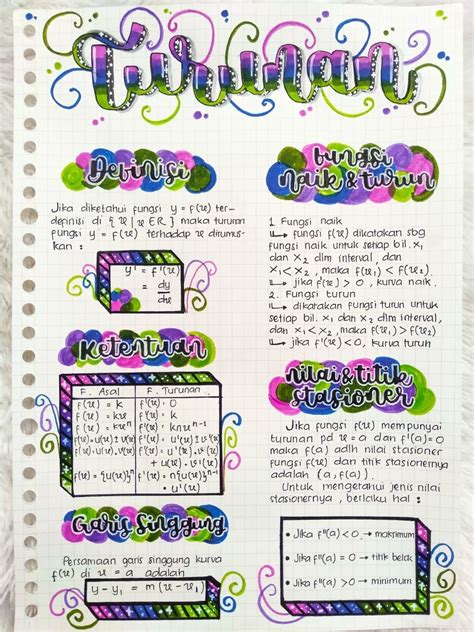 Turunan
Definisi
Jika diketahui fungsi y = f(x) ter-
definisi di {x | x ∈ R} maka turunan
fungsi y = f(x) terhadap x dirumus-
kan :
y' = f'(x)
= dy/dx
Ketentuan
F. Asal | F. Turunan
f(x) = k | f'(x) = 0
f(x) = kx | f'(x) = k
f(x) = kxⁿ | f'(x) = knxⁿ⁻¹
f(x) = u(x) ± v(x) | f'(x) = u'(x) ± v'(x)
f(x) = u(x) · v(x) | f'(x) = u'(x) · v(x)
+ u(x) · v'(x)
f(x) = {u(x)}ⁿ | f'(x) = n{u(x)}ⁿ⁻¹
· u'(x)
Garis Singgung
Persamaan garis singgung kurva
f(x) di x = a adalah
y - y₁ = m (x - x₁)
Fungsi
Naik & Turun
1 Fungsi naik
↳ fungsi f(x) dikatakan sbg
fungsi naik untuk setiap bil. x₁
dan x₂ dlm interval, dan
x₁ < x₂, maka f(x₁) < f(x₂).
↳ jika f'(x) > 0, kurva naik.
2. Fungsi turun
↳ dikatakan fungsi turun untuk
setiap bil. x₁ dan x₂ dlm interval,
dan x₁ < x₂, maka f(x₁) > f(x₂)
↳ jika f'(x) < 0, kurva turun
Nilai & titik
Stasioner
Jika fungsi f(x) mempunyai
turunan pd x = a dan f'(a) = 0
maka f(a) adlh nilai stasioner
fungsi f(x) dan titik stasionernya
adalah (a, f(a)).
Untuk mengetahui jenis nilai
stasionernya, berlaku hal :
• Jika f"(a) < 0 → maksimum
• Jika f"(a) = 0 → titik belok
• Jika f"(a) > 0 → minimum